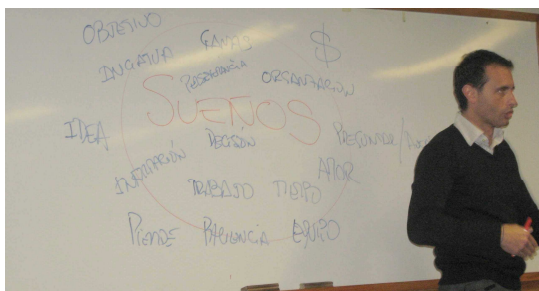 OBJETIVO GANAS $
INICIATIVA PERSEVERANCIA ORGANIZACIÓN
SUEÑOS
IDEA DECISIÓN PREGUNTAR/
AMOR
TRABAJO TIEMPO
PACIENCIA EQUIPO